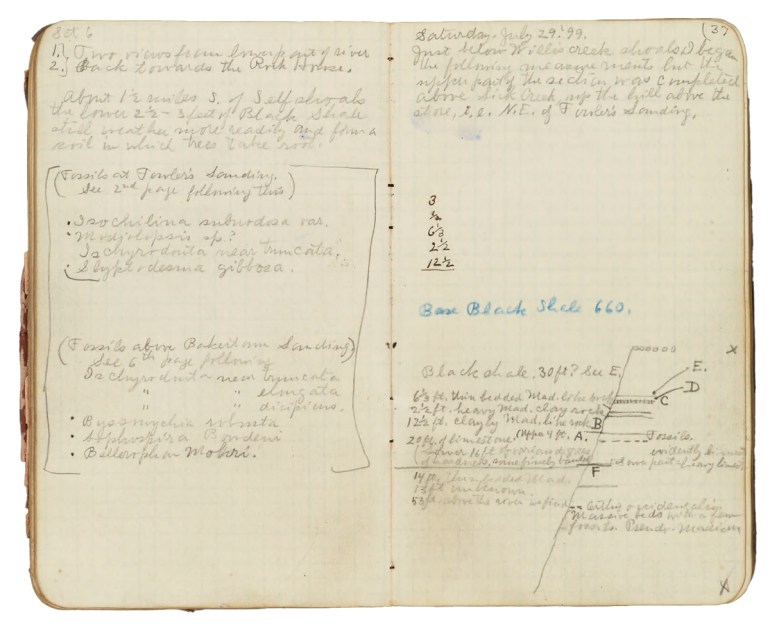 1.) Two views from lower part of river
2.) Back towards the Rock House.
About 1½ miles S. of Self shoals
the lower 2½ - 3 feet of Black Shale
still weather more readily and form a
soil in which trees take root.
(Fossils at Fowler's Landing.
See 2nd page following this)
• Isochilina subnodosa var.
• Modiolopsis sp.?
Ischyrodonta near truncata.
• Glyptodesma gibbosa.
(Fossils above Bakertown Landing)
See 6th page following
Ischyrodonta near truncata
" " elongata
" "
• Byssonychia robusta
• Lophospira Bowdeni
• Bellerophon Mohri.
(37
Saturday. July 29. '99.
Just below Willis creek shoals I began
the following measurements but the
upper part of the section was completed
above Sink Creek, up the hill above the
store, i.e. N.E. of Fowler's Landing.
3
3½
6⅓
2½
12½
Base Black Shale 660.
x
Black shale. 30 ft? See E.
E.
D
C
6⅓ ft. thin bedded Mad. like rock
2½ ft. heavy Mad. clay rock
B
12½ ft. clayey Mad. like rock
20 ft of limestone. (Upper 4 ft. A.
Fossils
(Lower 16 ft of various degrees
of hardness, some finely banded
evidently
1st one part of easy lines.
F
14 ft. thin bedded Mad.
13 ft unknown.
53 ft. above the river is find
Massive beds with a few
fossils Pseudo-Madison
x